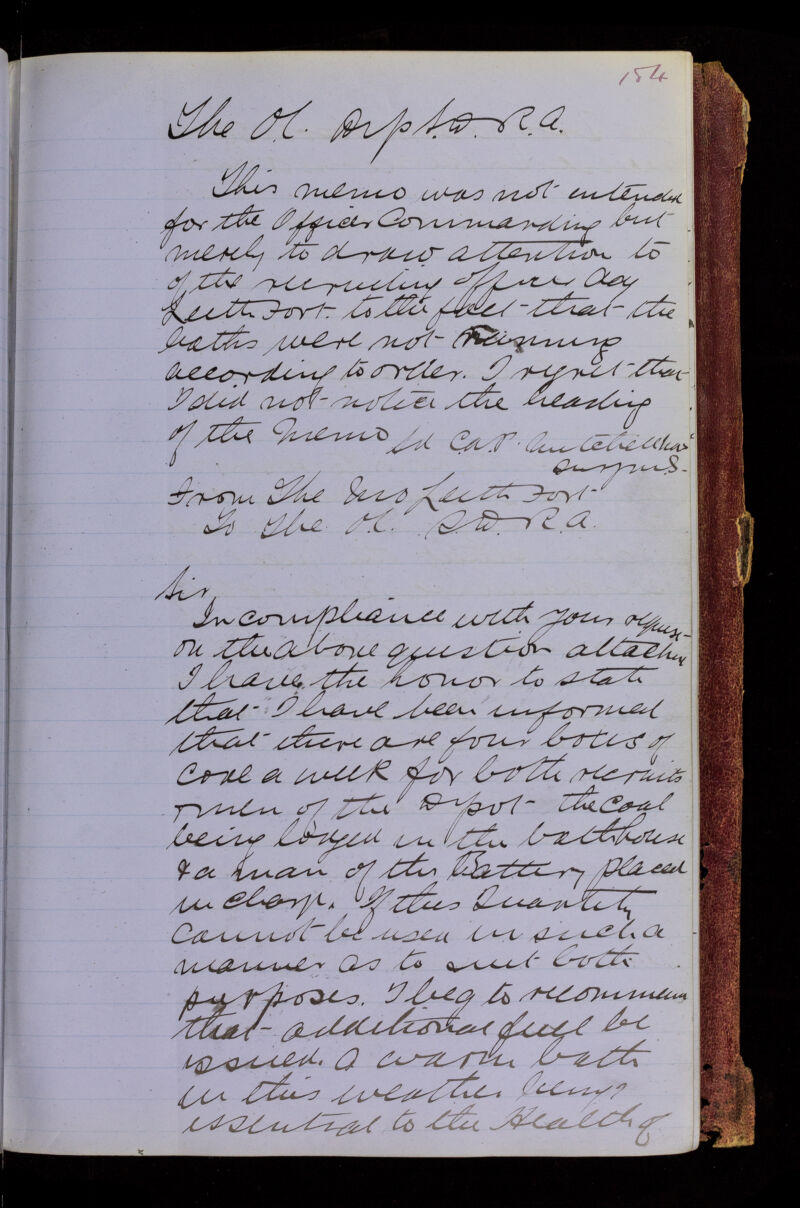 184
The O.C. Dep S.D.R.A.
This memo was not intended
for the Officer Commanding but
merely to draw attention to
of the recruiting office
Leith Fort. to the fact that the
baths were not running
according to order. I regret that
I did not notice the heading
of the Memo Sd
From The MO Leith Fort
To The O.C. S.D.R.A.
Sir
In compliance with your request
on the above question attached
I have the honor to state
that I have been informed
that there are four boxes of
coal a week for both recruits
& men of the Depot the coal
being lodged in the bathhouse
& a man of the Battery placed
in charge. If this Quantity
cannot be used in such a
manner as to suit both
purposes. I beg to recommend
that additional fuel be
issued. A warm bath
in this weather being
essential to the Health of